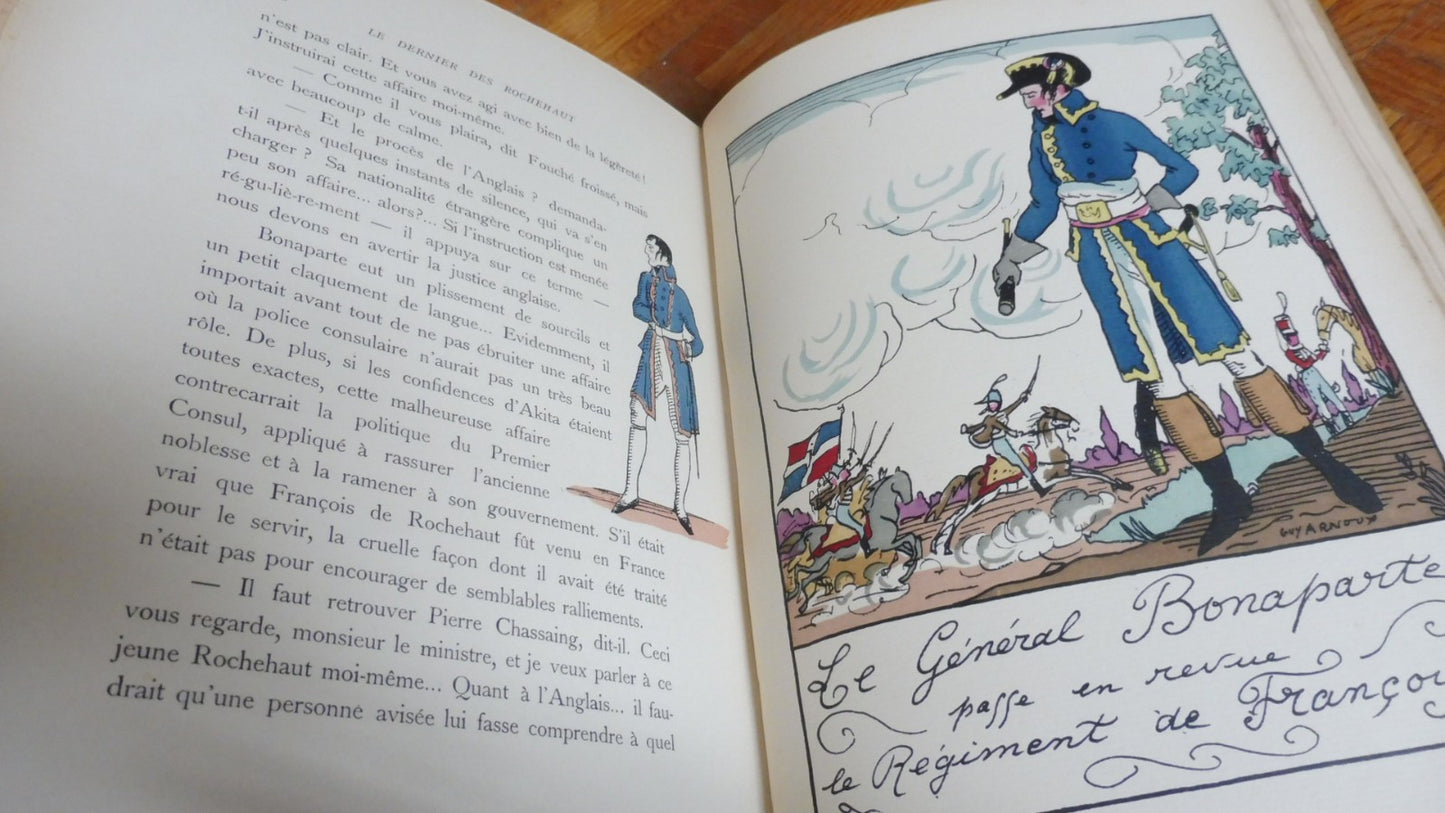 LE DERNIER DES ROCHEHAUT
n'est pas clair. Et vous avez agi avec bien de la légèreté !
J'instruirai cette affaire moi-même.
— Comme il vous plaira, dit Fouché froissé, mais
avec beaucoup de calme.
— Et le procès de l'Anglais ? demanda-
t-il après quelques instants de silence, qui va s'en
charger ? Sa nationalité étrangère complique un
peu son affaire... alors?... Si l'instruction est menée
ré-gu-liè-re-ment — il appuya sur ce terme —
nous devons en avertir la justice anglaise.
Bonaparte eut un plissement de sourcils et
un petit claquement de langue... Evidemment, il
importait avant tout de ne pas ébruiter une affaire
où la police consulaire n'aurait pas un très beau
rôle. De plus, si les confidences d'Akita étaient
toutes exactes, cette malheureuse affaire
contrecarrait la politique du Premier
Consul, appliqué à rassurer l'ancienne
noblesse et à la ramener à son gouvernement. S'il était
vrai que François de Rochehaut fût venu en France
pour le servir, la cruelle façon dont il avait été traité
n'était pas pour encourager de semblables ralliements.
— Il faut retrouver Pierre Chassaing, dit-il. Ceci
vous regarde, monsieur le ministre, et je veux parler à ce
jeune Rochehaut moi-même... Quant à l'Anglais... il fau-
drait qu'une personne avisée lui fasse comprendre à quel
GUY ARNOUX
Le Général Bonaparte
passe en revue
le Régiment de Françoi